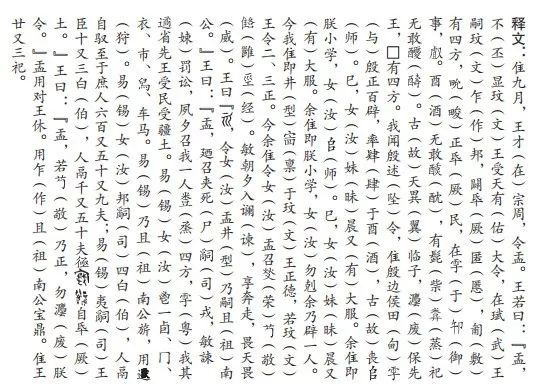 释文：隹九月，王才（在）宗周，令盂。王若曰：『盂，
不（丕）显玟（文）王受天有（佑）大令，在珷（武）王
嗣玟（文）乍（作）邦，闢氒（厥）匿（慝），匍（敷）
有四方，㽙（畯）正氒（厥）民，在雩（于）（御）
事，𠭯。酉（酒）无敢酖（酖），有髭（祡）（蒸）祀
无敢醻（醻）。古（故）天异（翼）临子，灋（废）保先
王，□有四方。我闻殷述（坠）令，隹殷边侯田（甸）雩
（与）殷正百辟，率肄（肆）于酉（酒），古（故）丧𠂤
（师）。巳，女（汝）妹（昧）晨又（有）大服。余隹即
朕小学，女（汝）𠂤（师）。巳，女（汝）妹（昧）晨又
（有）大服。余隹即朕小学，女（汝）勿剋余乃辟一人。
今我隹即井（型）㐭（禀）于玟（文）王正德，若玟（文）
王令二、三正。今余隹令女（汝）盂召焚（荣）芍（敬）
（雝）巠（经）。敏朝夕入谰（谏），享奔走，畏天畏
（威）。王曰『，令女（汝）盂井（型）乃嗣且（祖）南
公。』王曰：『盂，廼召夹死（尸）嗣（司）戎，敏諫
（諫）罚讼，夙夕召我一人烝（蒸）四方，雩（粤）我其
遹省先王受民受疆土。易（锡）女（汝）鬯一卣、冂、
衣、巿、舄、车马。易（锡）乃且（祖）南公旂，用
（狩）。易（锡）女（汝）邦嗣（司）四白（伯），人鬲
自驭至于庶人六百又五十又九夫；易（锡）夷嗣（司）王
臣十又三白（伯），人鬲千又五十夫自氒（厥）
土。』王曰：『盂，若芍（敬）乃正，勿灋（废）朕
令。』盂用对王休。用乍（作）且（祖）南公宝鼎。隹王
廿又三祀。